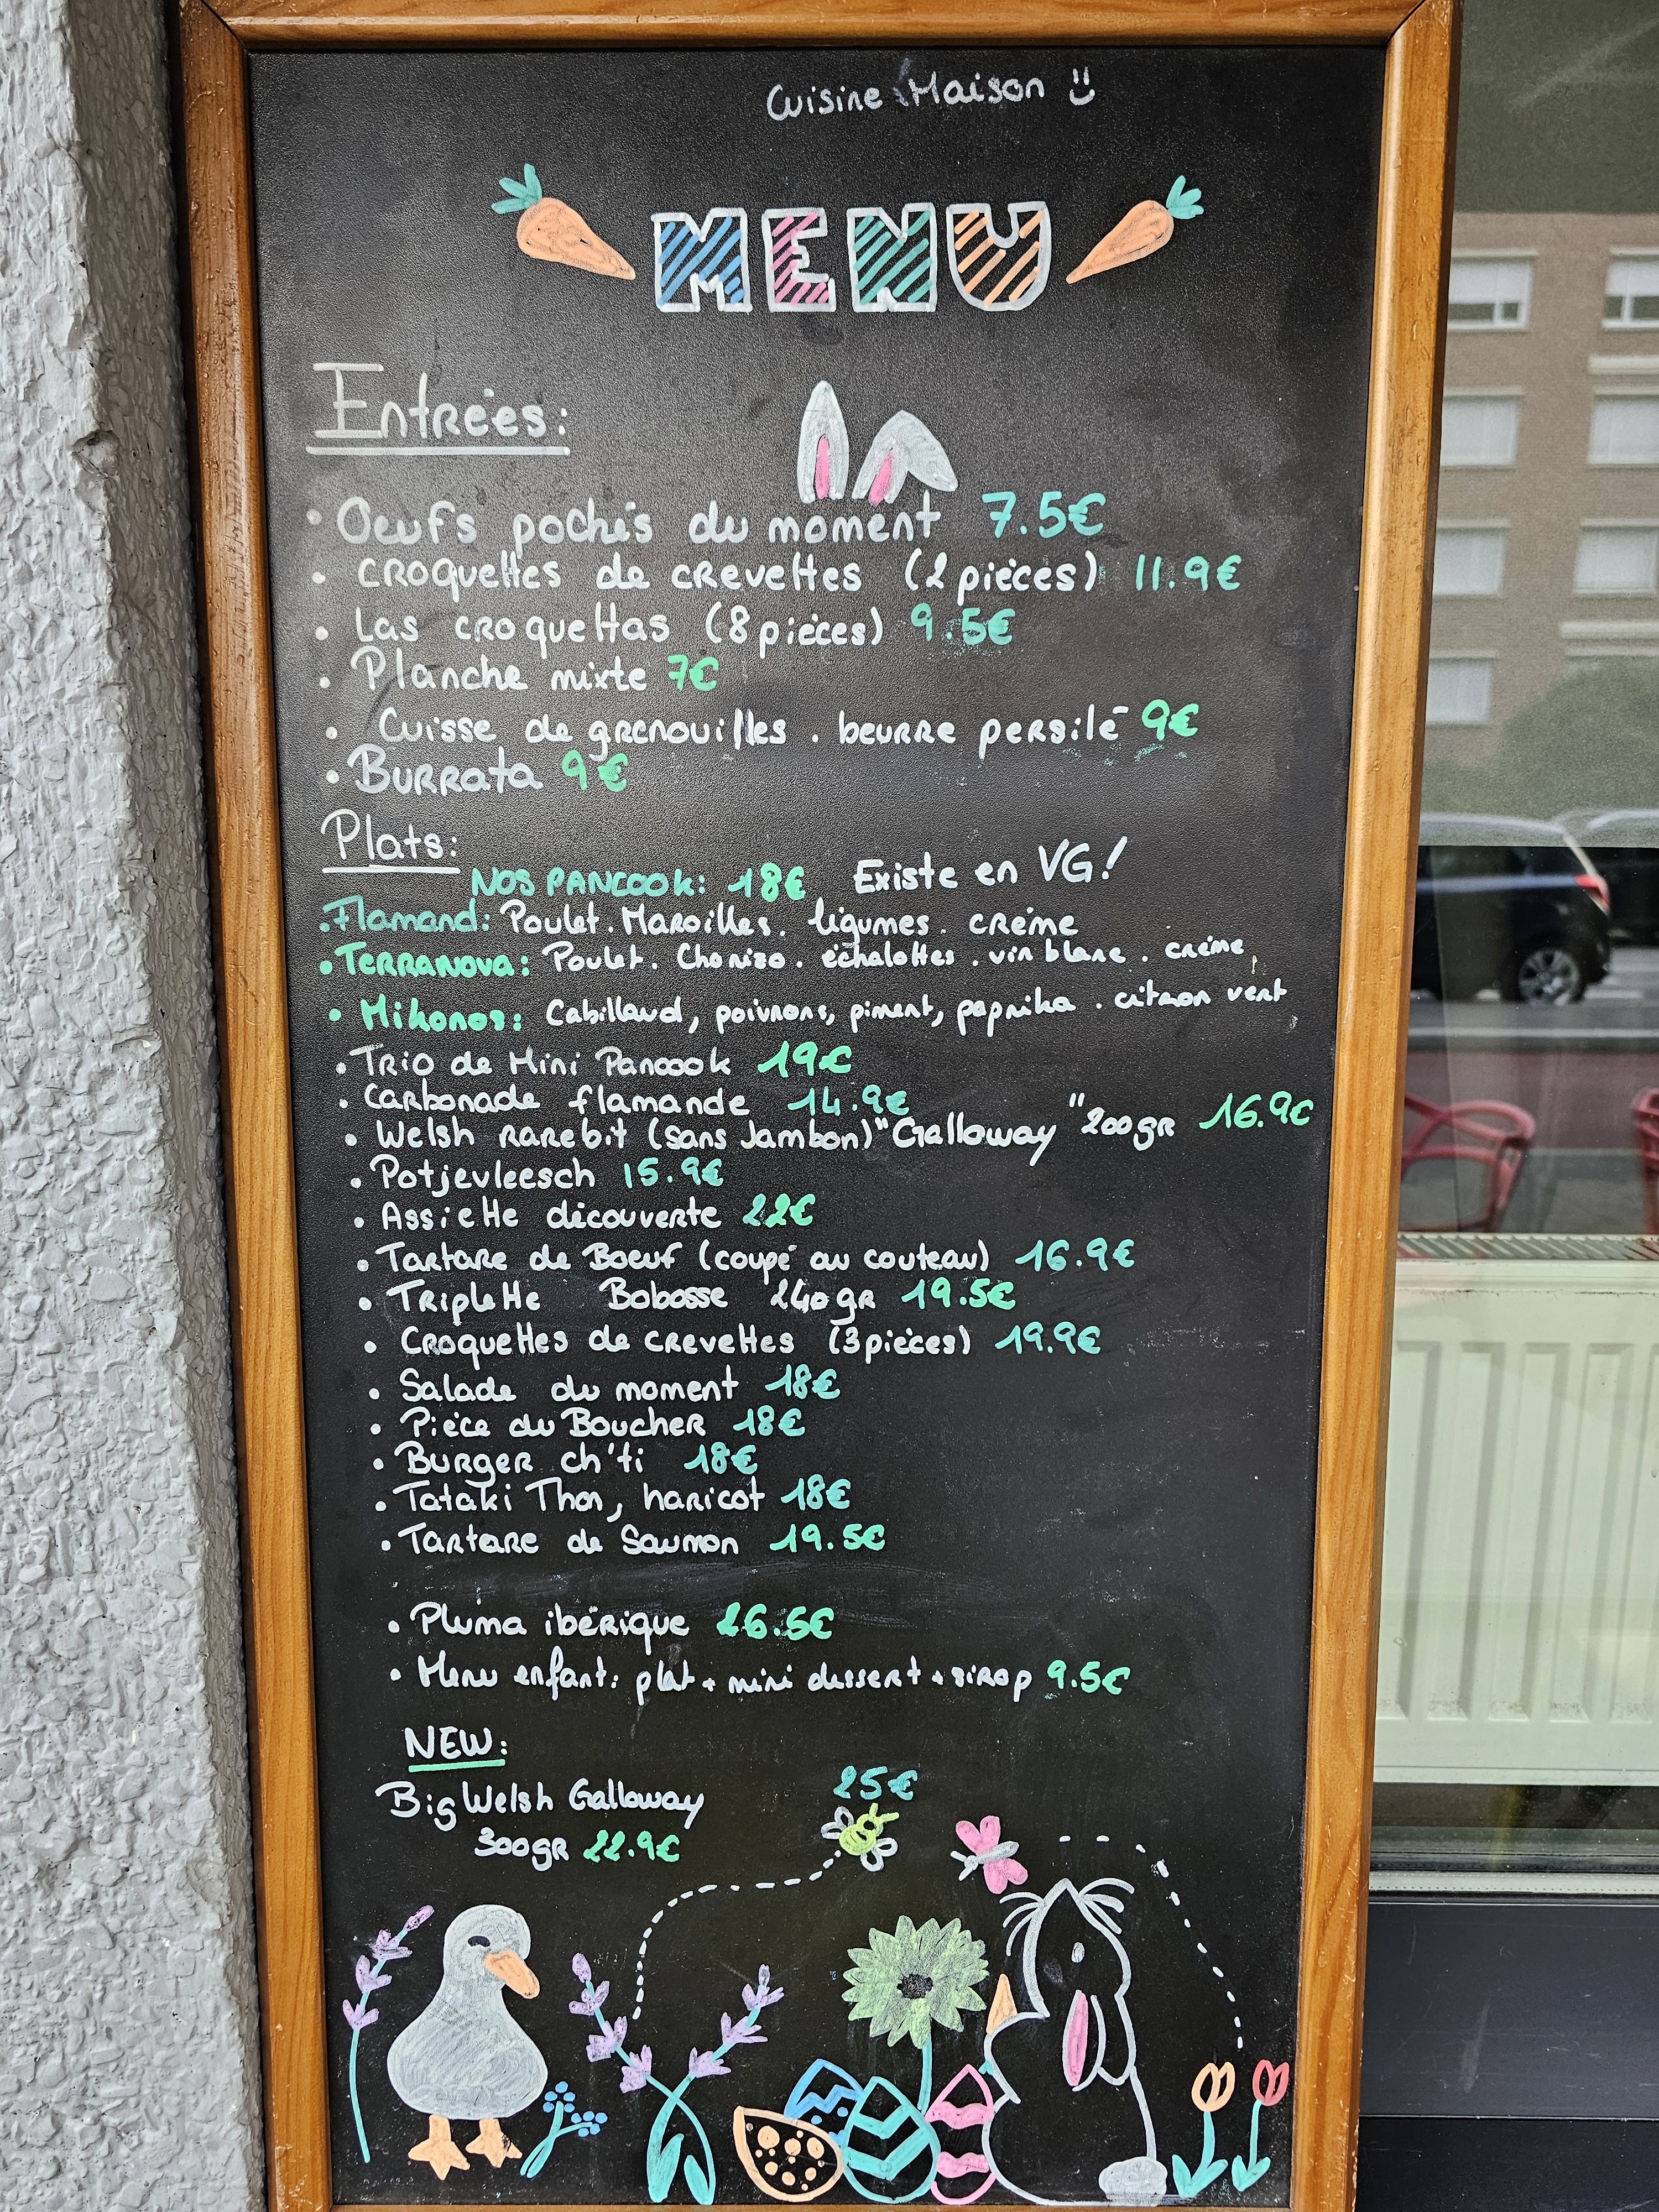 Cuisine Maison
MENU
Entrées:
• Oeufs pochés du moment 7.5€
• Croquettes de crevettes (2 pièces) 11.9€
• Las croquettas (8 pièces) 9.5€
• Planche mixte 7€
• Cuisse de grenouilles . beurre persilé 9€
• Burrata 9€
Plats:
NOS PANCOOK: 18€ Existe en VG!
• Flamand: Poulet. Maroilles. légumes. crème
• Terranova: Poulet. Chorizo. échalottes . vin blanc . crème
• Mikonos: Cabillaud, poivrons, piment, paprika . citron vert
• Trio de Mini Pancook 19€
• Carbonade flamande 14.9€
• Welsh rarebit (sans Jambon) "Galloway" 200gr 16.9€
• Potjevleesch 15.9€
• Assiette découverte 22€
• Tartare de Boeuf (coupé au couteau) 16.9€
• Triplette Bobosse 240gr 19.5€
• Croquettes de crevettes (3 pièces) 19.9€
• Salade du moment 18€
• Pièce du Boucher 18€
• Burger ch'ti 18€
• Tataki Thon, haricot 18€
• Tartare de Saumon 19.5€
• Pluma ibérique 26.5€
• Menu enfant: plat + mini dessert + sirop 9.5€
NEW:
Big Welsh Galloway 25€
300gr 22.9€